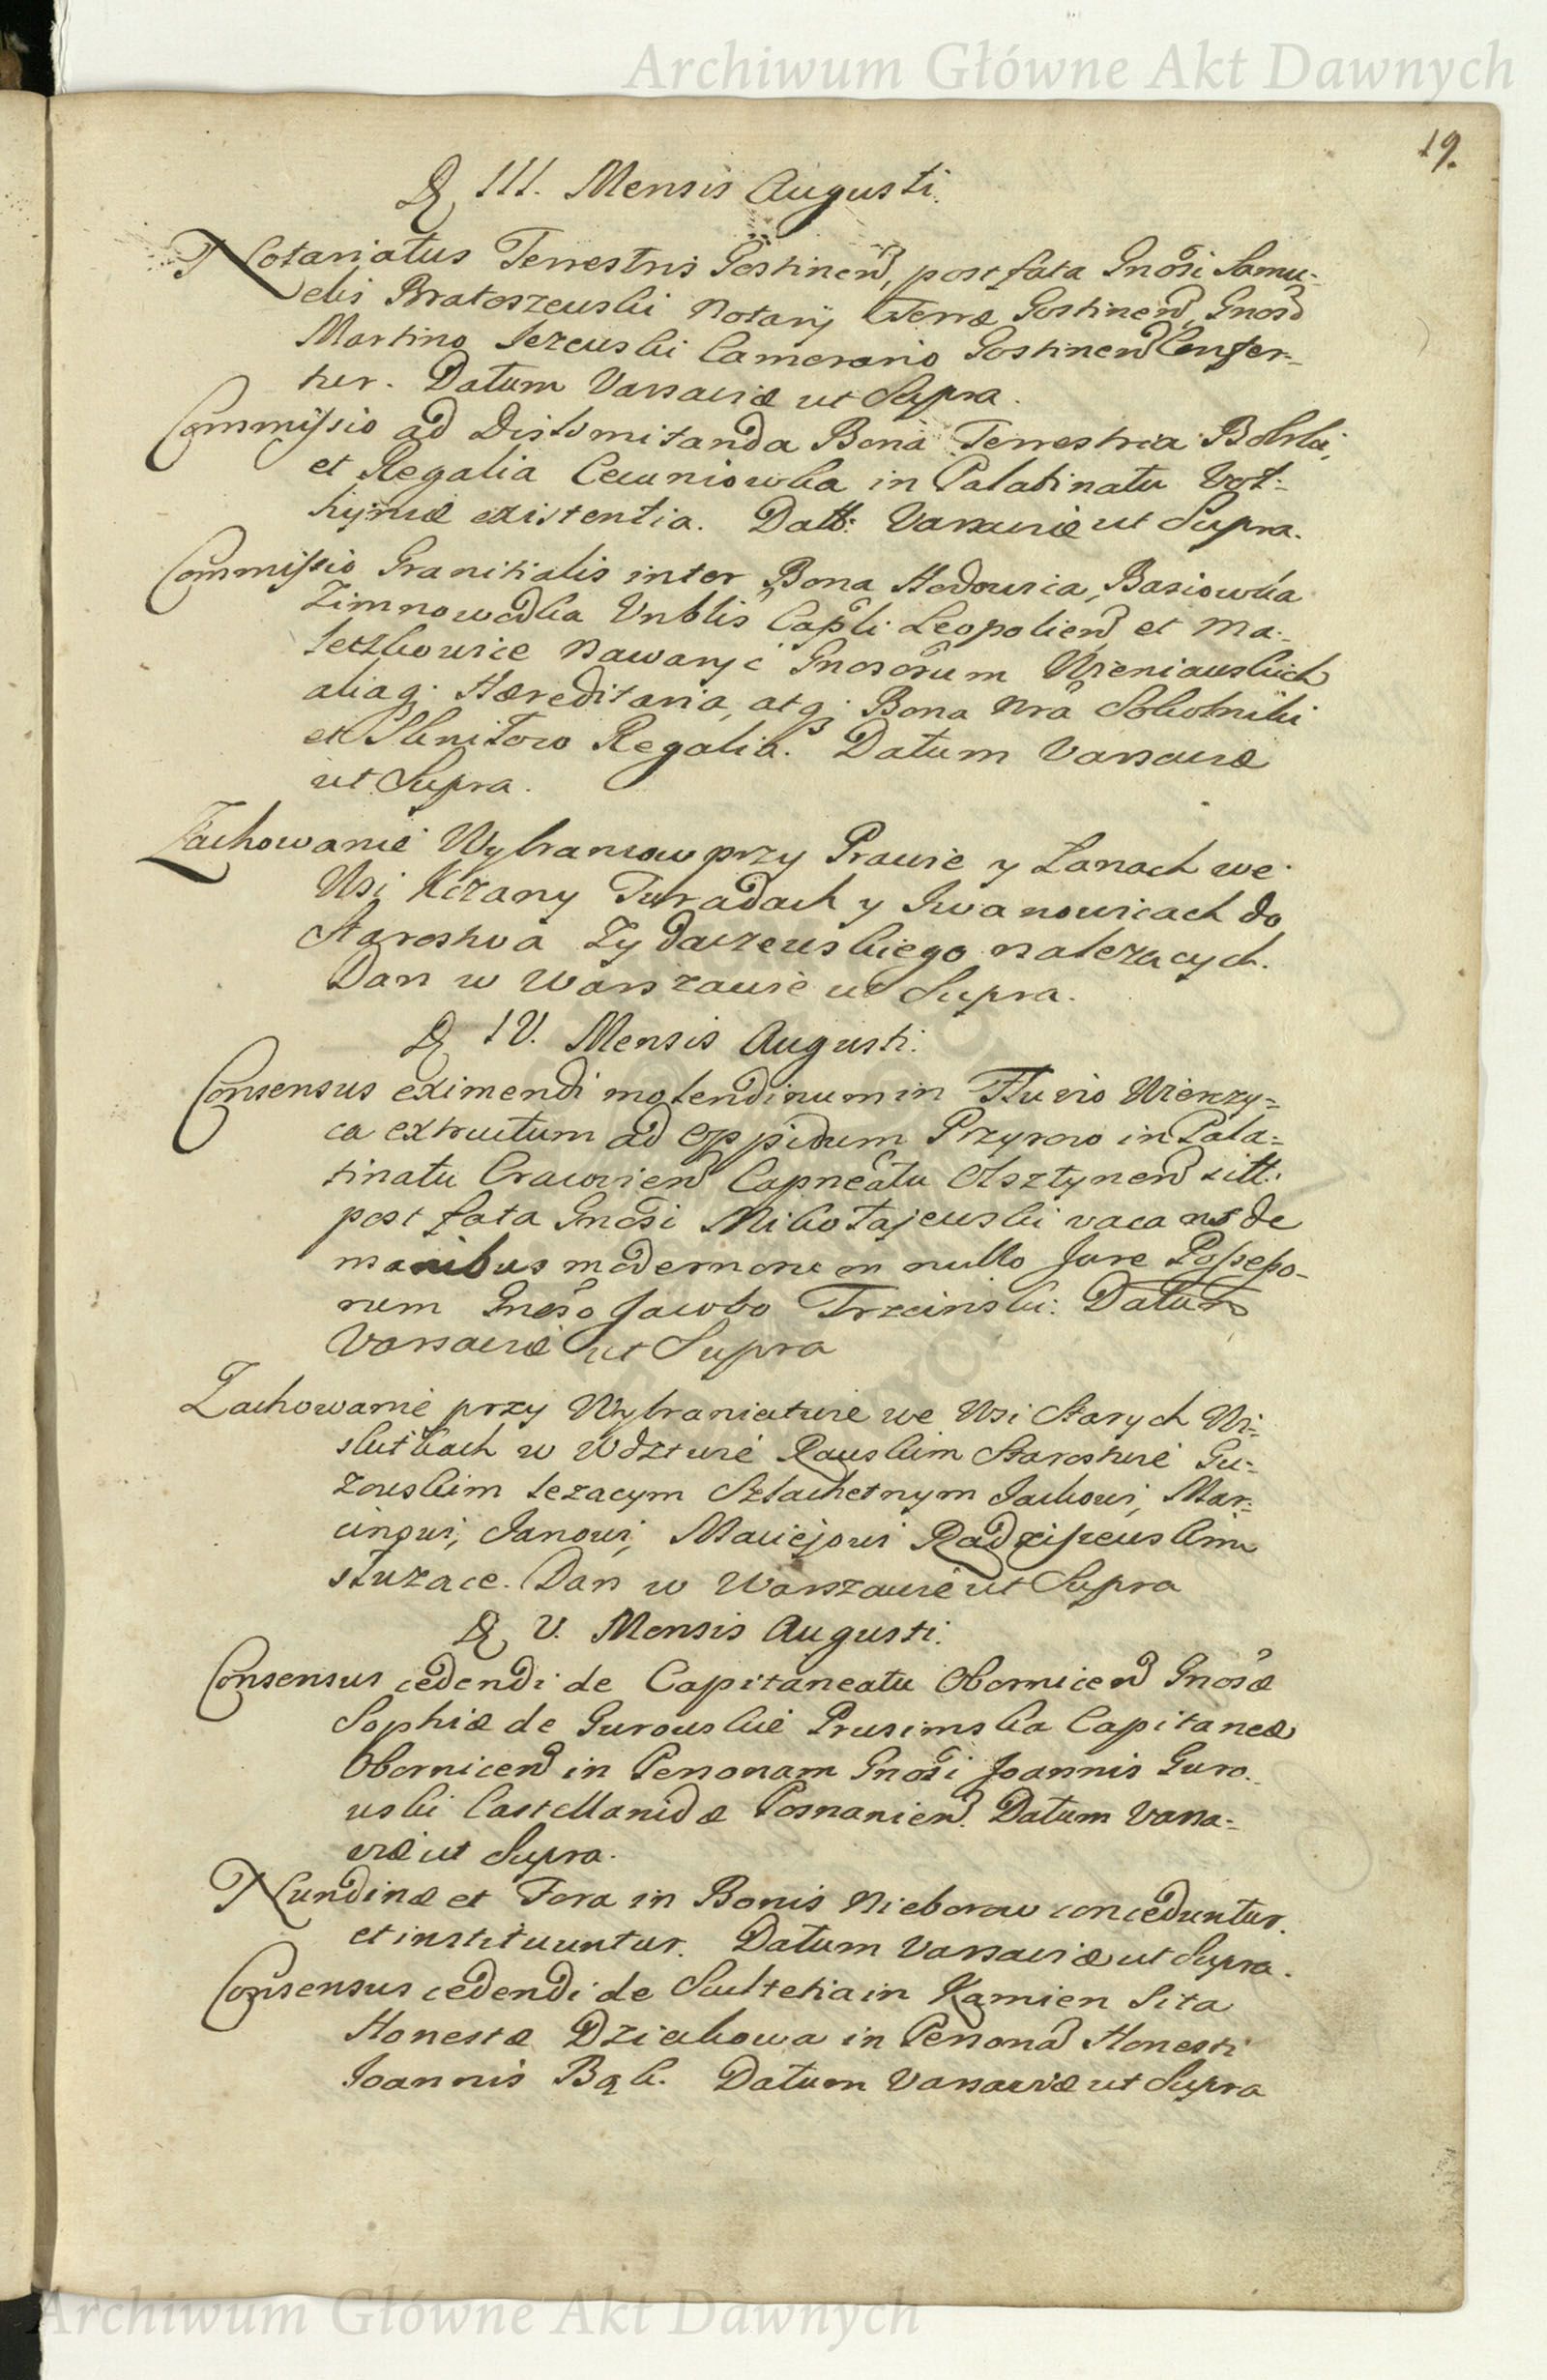 Archiwum Główne Akt Dawnych
19.
D. III. Mensis Augusti.
Notariatus Terrestris Gostinen, post fata Gnosi Samu-
elis Bratoszewski Notarij Terræ Gostinen, Gnoso
Martino Lezewski Camerario Gostinen Confer-
tur. Datum Varsaviæ ut Supra.
Commissio ad Dislimitanda Bona Terrestria Bolska,
et Regalia Cecuniowka in Palatinatu Vol-
hijniæ existentia. Datt: Varsaviæ ut Supra.
Commissio Granitialis inter Bona Hodowica, Basiowka
Zimnowodka Vnblis Capli Leopolien et Ma-
leczkowice Nawaryi Gnosorum Wieniawskich
aliaq. Hæreditaria, atq; Bona Nra Sokolniki
et Sknitow Regalia. Datum Varsaviæ
ut Supra.
Zachowanie Wybrancow przy Prawie y Lanach we
Wsi Kczany Turadach y Iwanowicach do
Starostwa Zydaczewskiego nalezacych.
Dan w Warszawie ut Supra.
D. IV. Mensis Augusti.
Consensus eximendi molendinum in Fluvio Wierzy-
ca extructum ad Oppidum Przyrow in Pala-
tinatu Cracovien Capneatu Olsztynen sitt:
post fata Gnosi Mikołajewski vacans de
manibus modernorum nullo Jure Possesso-
rum Gnoso Jacobo Trzcinski. Datum
Varsaviæ ut Supra
Zachowanie przy Wybraniectwie we Wsi Starych Wi-
skitkach w Wdztwie Rawskim Starostwie Gu-
zowskim lezacym Szlachetnym Jackowi, Mar-
cinowi, Janowi, Maciejowi Radziszewskim
słuzace. Dan w Warszawie ut Supra
D. V. Mensis Augusti.
Consensus cedendi de Capitaneatu Obornicen Gnosæ
Sophiæ de Gurowskie Prusimska Capitaneæ
Obornicen in Personam Gnosi Joannis Guro-
wski Castellanidæ Posnanien. Datum Varsa-
viæ ut Supra.
Nundinæ et Fora in Bonis Nieborow conceduntur.
et instituuntur. Datum Varsaviæ ut Supra.
Consensus cedendi de Scultetia in Kamien Sita
Honestæ Dziekowa in Persona Honesti
Joannis Bąk. Datum Varsaviæ ut Supra
Archiwum Główne Akt Dawnych